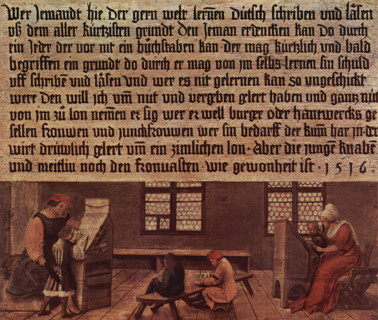 Wer Jemandt hie der gern welt lernen Dütsch schriben und läsen
uß dem aller kürtzisten grundt den Jeman erdencken kan do durch
ein Jeder der vor nit ein büchstaben kan der mag kürtzlich und bald
begriffen ein grundt do durch er mag von jm selbs lernen sin schuld
uff schribē und läsen und wer es nit gelernen kan so ungeschickt
were den will ich um̄ nut und vergeben glert haben und gantz nüt
von jm zů lon nemen er sig wer er well burger oder hantwercks ge
sellen frouwen und junckfrouwen wer sin bedarff der kum̄ har jn der
wirt drüwlich glert um̄ ein zimlichen lon · aber die junge knabē
und meitlin noch den fronuasten wie gewonheit ist · 1516